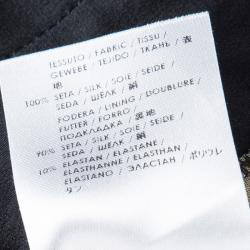 TESSUTO / FABRIC / TISSU /
GEWEBE / TEJIDO / ТКАНЬ / 表
地
100% SETA / SILK / SOIE / SEIDE /
SEDA / ШЁЛК / 絹
FODERA / LINING / DOUBLURE /
FUTTER / FORRO / 裏地
ПОДКЛАДКА /
90% SETA / SILK / SOIE / SEIDE /
SEDA / ШЁЛК / 絹
10% ELASTAN / ELASTANE /
ELASTHANNE / ELASTHAN /
ELASTANO / ЭЛАСТАН / ポリウレ
タン